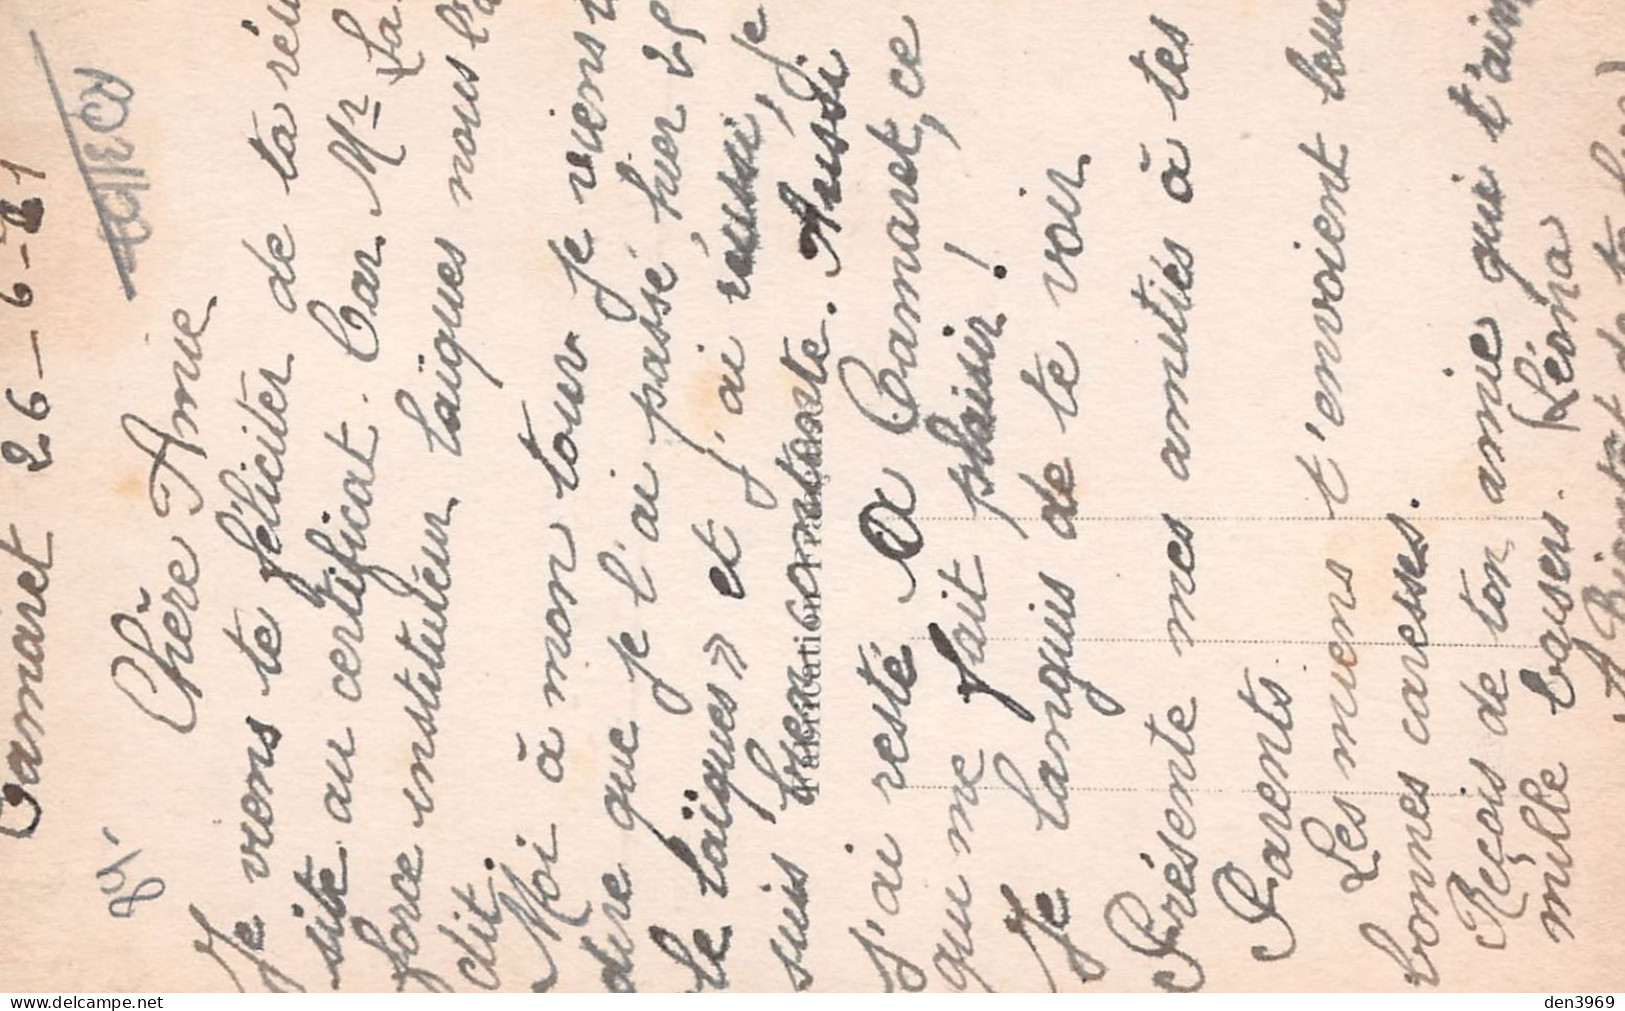 Camaret 26-6-21
Chère Amie
Je viens te féliciter de ta réus
site au certificat. Car Mr La
force instituteur laïques nous l'a
dit.
Moi à mon tour je viens t
dire que je l'ai passé, hier 25
le laïques » et j'ai réussi, je
suis bien contente. Aussi
j'ai resté a Camaret, ce
qui me fait plaisir!
Je languis de te voir
Présente mes amitiés à tes
Parents.
Les miens t'envoient leur
bonnes caresses.
Reçois de ton amie qui t'aim
mille baisers. Léona
Fabrication
© delcampe.net
den3969